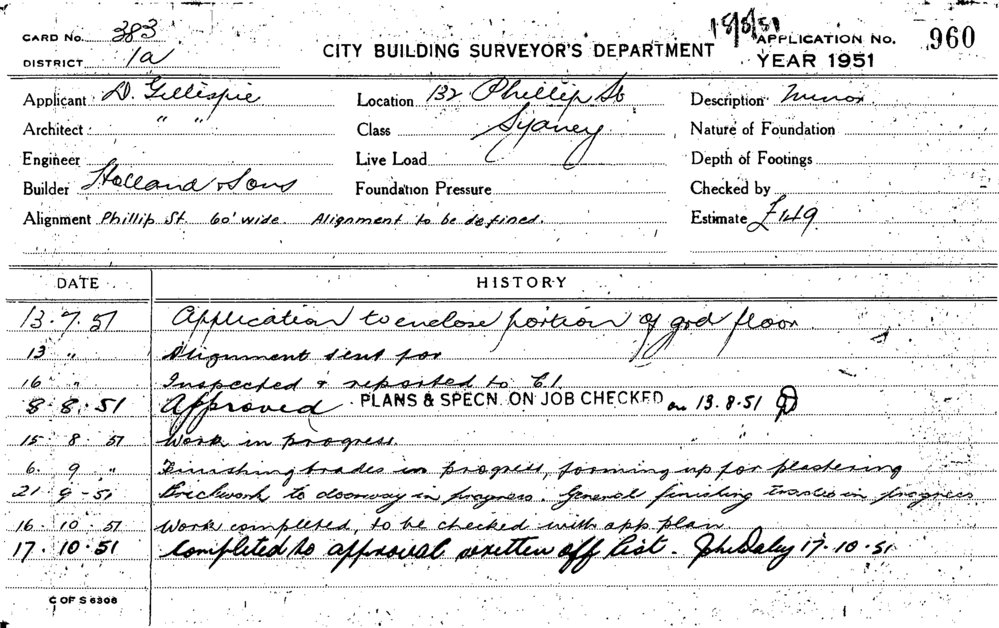 CARD No. 383
DISTRICT 1a
CITY BUILDING SURVEYOR'S DEPARTMENT
15/8/51
APPLICATION No. 960
YEAR 1951
Applicant D. Gillespie
Location 132 Phillip St
Description Minor
Architect " "
Class Sydney
Nature of Foundation
Engineer
Live Load
Depth of Footings
Builder Holland & Sons
Foundation Pressure
Checked by
Alignment Phillip St. 60' wide. Alignment to be defined.
Estimate £149
DATE HISTORY
13.7.51 Application to enclose portion of grd floor
13 " Alignment sent for
16 " Inspected & reported to C.I.
8.8.51 Approved PLANS & SPECN. ON JOB CHECKED on 13.8.51
15.8.51 Work in progress
6.9 " Finishing trades in progress, forming up for plastering
21.9.51 Brickwork to doorway in progress. General finishing trades in progress
16.10.51 Work completed, to be checked with app. plan
17.10.51 Completed to approval written off list. Daley 17.10.51
C OF S 6308